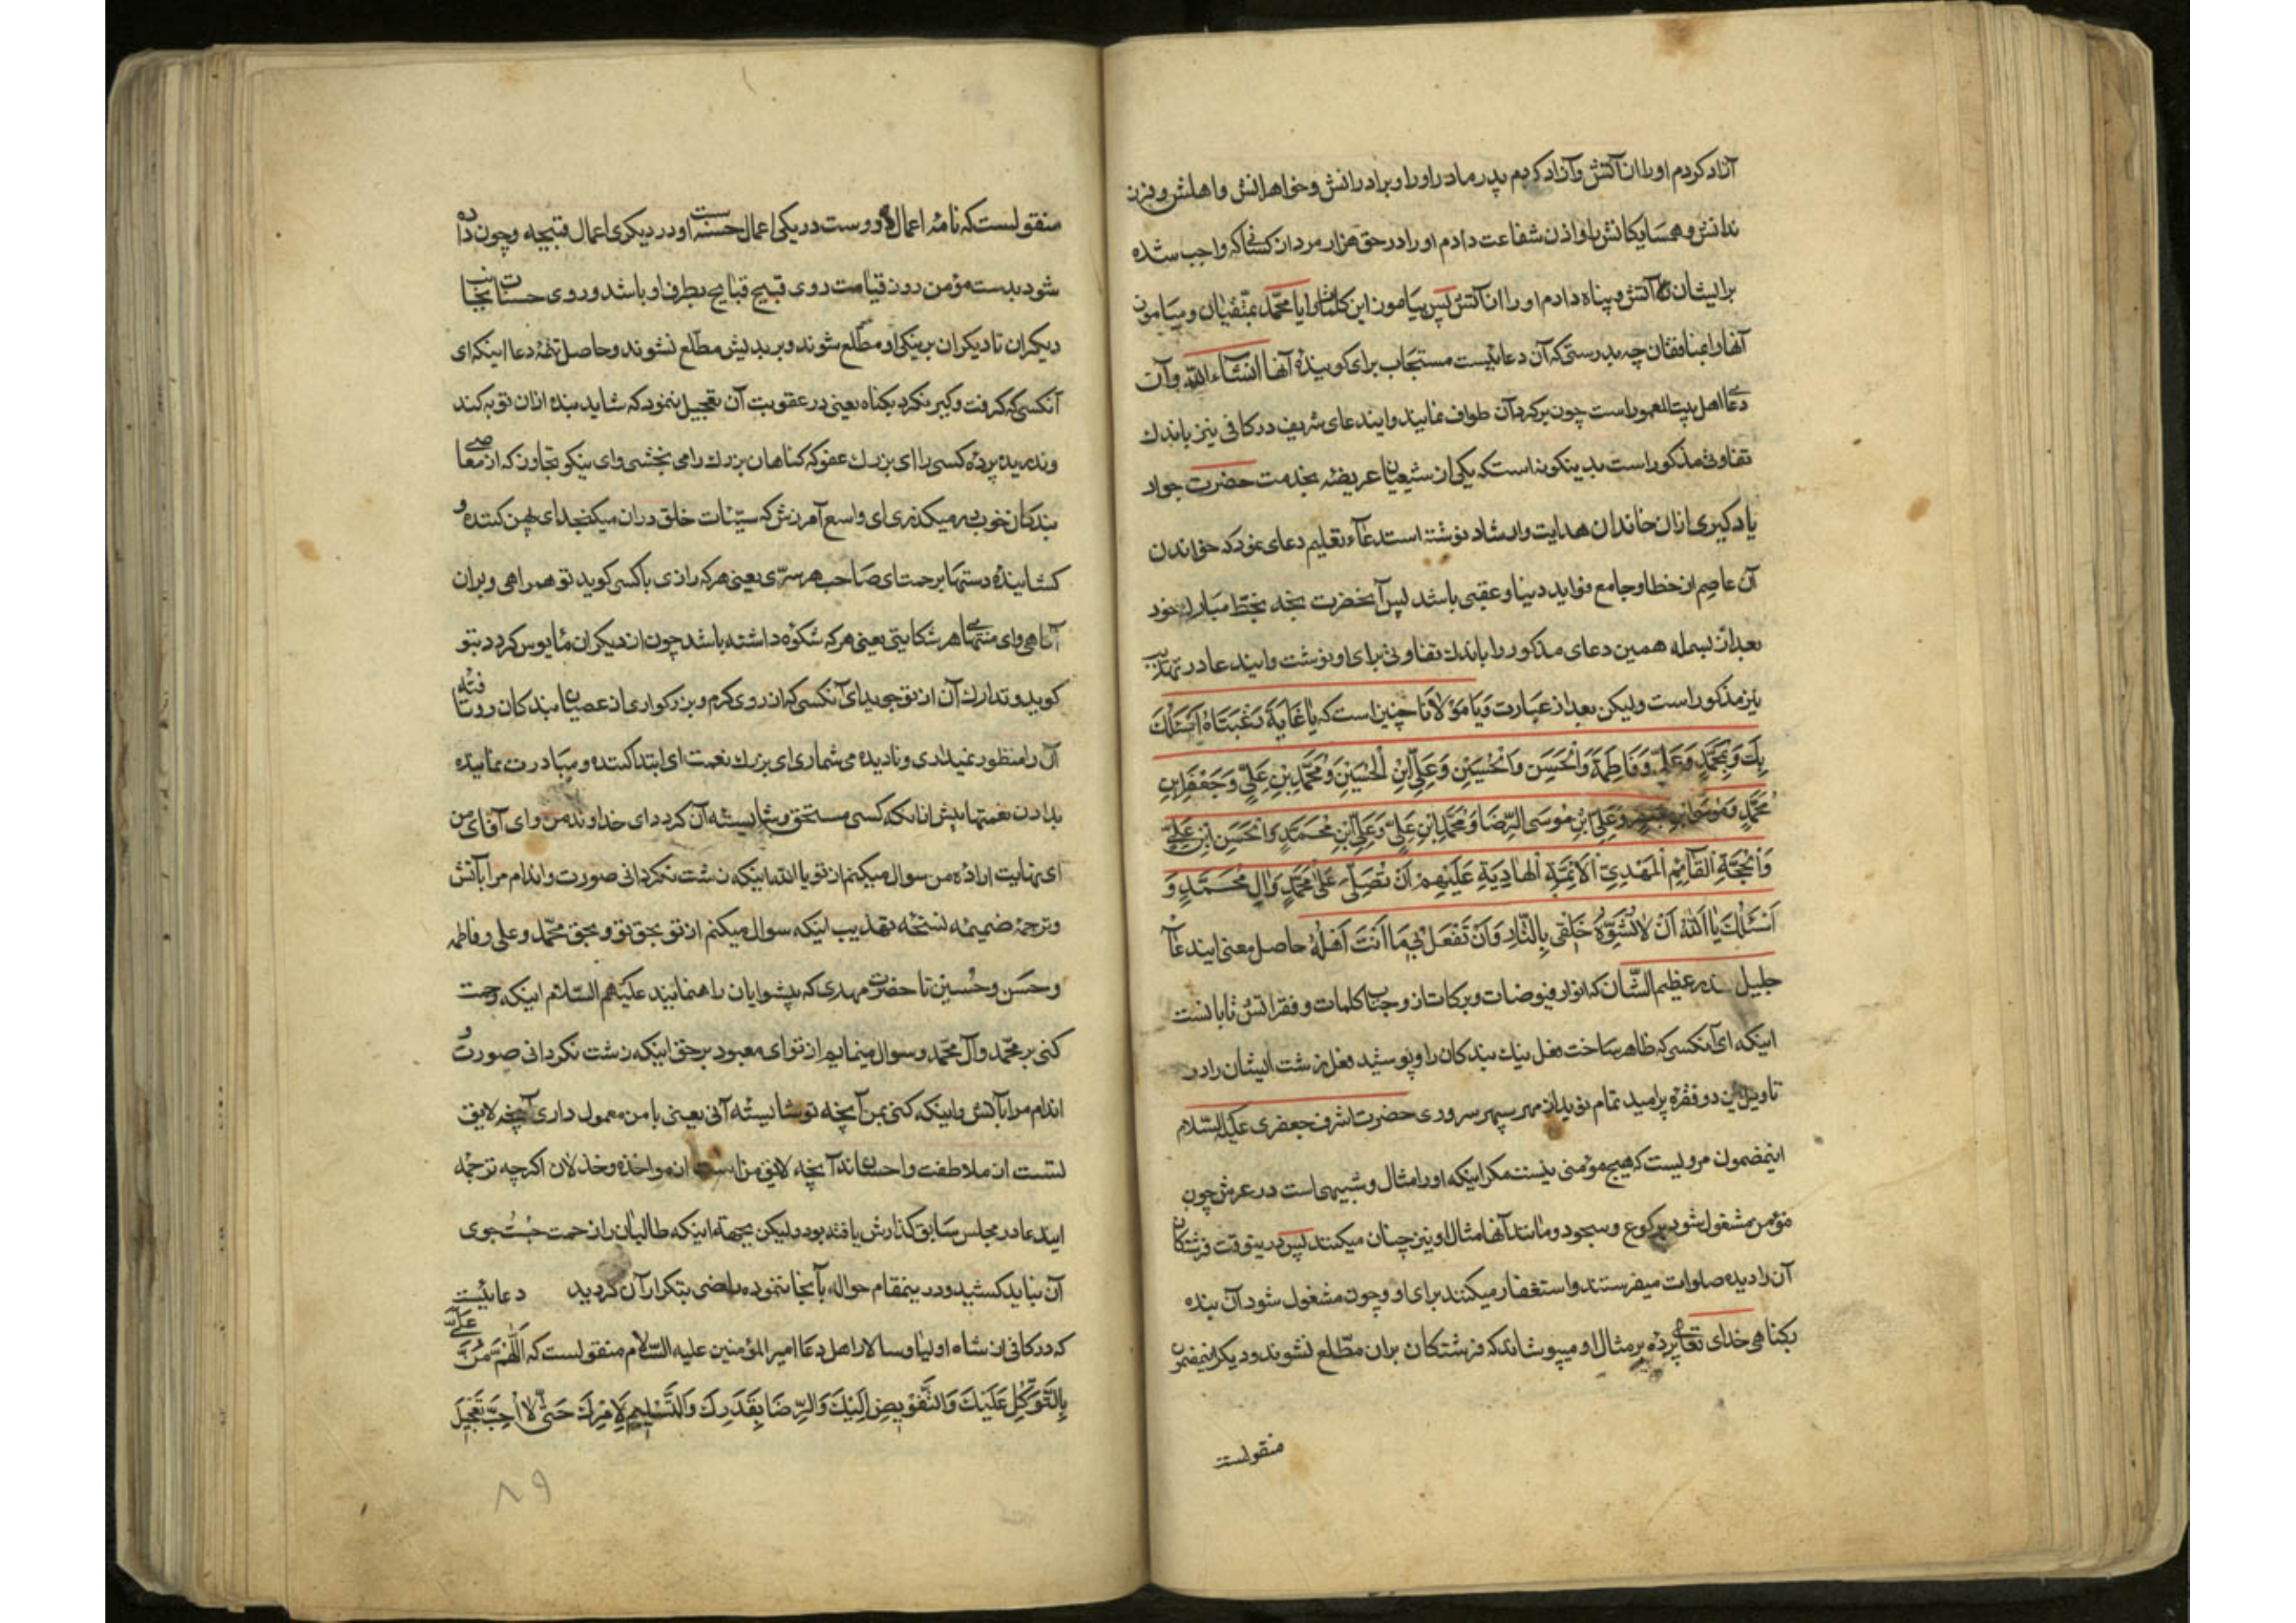 آزاد کردم او را از آتش و آزاد کردم پدر مادر او را و برادرانش و خواهرانش و اهلش و فرز
ندانش و همسایکانش را و اذن شفاعت دادم او را در حق هزار مرد از کسانی که واجب شده
برایشان آتش و پناه دادم او را از آتش پس بیاموز این کلمات را یا محمد بمتقیان و میاموز
آنها را بمنافقان چه بدرستی که آن دعائیست مستجاب برای کویندهٔ آنها انشاء الله و آن
دعای اهل بیت المعمور است چون بر کرد آن طواف نمایند و ایندعای شریف در کافی نیز باندک
تفاوتی مذکور است بدینکونه است که یکی از شیعیان عریضه بخدمت حضرت جواد
یادکیری از آن خاندان هدایت و ارشاد نوشته استدعاء تعلیم دعای نمود که خواندن
آن عاصم از خطا و جامع فواید دنیا و عقبی باشد پس آنحضرت بخط مبارک خود
بعد از بسمله همین دعای مذکور را باندک تفاوتی برای او نوشت و ایندعا در تهذیب
نیز مذکور است ولیکن بعد از عبارت وَیَا مَوْلَانَا چنین است که یَا غَایَةَ رَغْبَتَاهُ اَسْئَلُکَ
بِکَ وَبِمُحَمَّدٍ وَعَلِیٍّ وَفَاطِمَةَ وَالْحَسَنِ وَالْحُسَیْنِ وَعَلِیِّ ابْنِ الْحُسَیْنِ وَمُحَمَّدِ بْنِ عَلِیٍّ وَجَعْفَرِ ابْنِ
مُحَمَّدٍ وَمُوسَی ابْنِ جَعْفَرٍ وَعَلِیِّ ابْنِ مُوسَی الرِّضَا وَمُحَمَّدِ ابْنِ عَلِیٍّ وَعَلِیِّ ابْنِ مُحَمَّدٍ وَالْحَسَنِ ابْنِ عَلِیٍّ
وَالْحُجَّةِ الْقَآئِمِ الْمَهْدِیِّ الْاَئِمَّةِ الْهَادِیَةِ عَلَیْهِمْ اَنْ تُصَلِّیَ عَلٰی مُحَمَّدٍ وَآلِ مُحَمَّدٍ وَ
اَسْئَلُکَ یَا اَللّٰهُ اَنْ لَا تُشَوِّهَ خَلْقِی بِالنَّارِ وَاَنْ تَفْعَلَ بِی مَا اَنْتَ اَهْلُهُ حاصل معنی ایندعای
جلیل عظیم الشأن که انوار فیوضات و برکات از وجنات کلمات و فقراتش تابانست
اینکه ای آنکسی که ظاهر ساخت فعل نیک بندکان را و پوشید فعل زشت ایشان را در
تاویل این دو فقرهٔ پر امید تمام نوید از مهر سپهر سروری حضرت اشرف جعفری علیه السلام
اینمضمون مرویست که هیچ مؤمنی نیست مکر اینکه او را مثال و شبیهی است در عرش چون
مؤمن مشغول شود برکوع و سجود و مانند آنها مثال او نیز چنان میکند پس درینوقت فرشتکان
آن را دیده صلوات میفرستند و استغفار میکنند برای او و چون مشغول شود آن بنده
بکناهی خدای تعالی پرده بر مثال او میپوشاند که فرشتکان بران مطلع نشوند و دیکر اینمضمون
منقولست
منقولست که نامهٔ اعمال دو روست در یکی اعمال حسنه است و در دیکری اعمال قبیحه و چون داده
شود بدست مؤمن روز قیامت روی قبیح قبایح بطرف او باشد و روی حسنات بجانب
دیکران تا دیکران بر نیکی او مطلع شوند و بر بدیش مطلع نشوند و حاصل تتمهٔ دعا اینکه ای
آنکسی که کرفت و کیر نکرد بکناه یعنی در عقوبت آن تعجیل ننمود که شاید بنده از آن توبه کند
و ندرید پردهٔ کسی را ای بزرک عفو که کناهان بزرک را می بخشی و ای نیکو تجاوز که از معاصی
بندکان خوب در میکذری ای واسع آمرزش که سیئات خلق در ان میکنجد ای پهن کننده و
کشایندهٔ دستها برحمت ای صاحب هر سرّی یعنی هر که رازی با کسی کوید تو همراهی و بران
آکاهی و ای منتهای هر شکایتی یعنی هر که شکوه داشته باشد چون از دیکران مأیوس کردد بتو
کوید و تدارک آن از تو جوید ای آنکسی که از روی کرم و بزرکواری از عصیان بندکان روتافته
آن را منظور نمیداری و نادیده می شماری ای بزرک نعمت ای ابتدا کننده و مبادرت نماینده
بدادن نعمتها پیش از آنکه کسی مستحق و شایسته آن کردد ای خداوند من و ای آقای من
ای نهایت ارادهٔ من سوال میکنم از تو یا الله اینکه زشت نکردانی صورت و اندام مرا بآتش
و ترجمهٔ ضمیمه نسخه تهذیب اینکه سوال میکنم از تو بحق تو و بحق محمّد و علی و فاطمه
و حَسَن و حُسین تا حضرت مهدی که پیشوایان راهنمایند علیهم السّلام اینکه رحمت
کنی بر محمّد و آل محمّد و سوال مینمایم از تو ای معبود بر حق اینکه زشت نکردانی صورت و
اندام مرا بآتش و اینکه کنی بمن آنچه تو شایستهٔ آنی یعنی با من معمول داری آنچه لایق
تست از ملاطفت و احسان نه آنچه لایق من است از مواخذه و خذلان اکرچه ترجمه
ایندعا در مجلس سابق کذارش یافته بود ولیکن بجهة اینکه طالبان را زحمت جُستجوی
آن نباید کشید و درینمقام حواله بآنجا ننموده راضی بتکرار آن کردید دعائیست
که در کافی از شاه اولیا و سالار اهل دعا امیر المؤمنین علیه السّلام منقولست که اَللّٰهُمَّ مُنَّ عَلَیَّ
بِالتَّوَکُّلِ عَلَیْکَ وَالتَّفْوِیضِ اِلَیْکَ وَالرِّضَا بِقَدَرِکَ وَالتَّسْلِیمِ لِاَمْرِکَ حَتّٰی لَا اُحِبَّ تَعْجِیلَ
۸۹